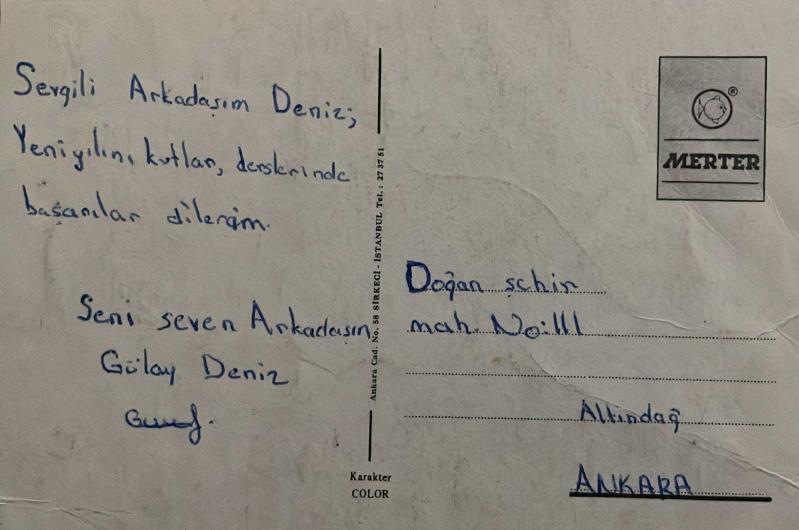 Sevgili Arkadaşım Deniz;
Yeni yılını kutlar, derslerinde
başarılar dilerim.
Seni seven Arkadaşın
Gülay Deniz
Ankara Cad. No. 58 SİRKECİ - İSTANBUL Tel.: 27 37 51
Karakter
COLOR
®
MERTER
Doğan şehir
mah. No: 111
Altındağ
ANKARA